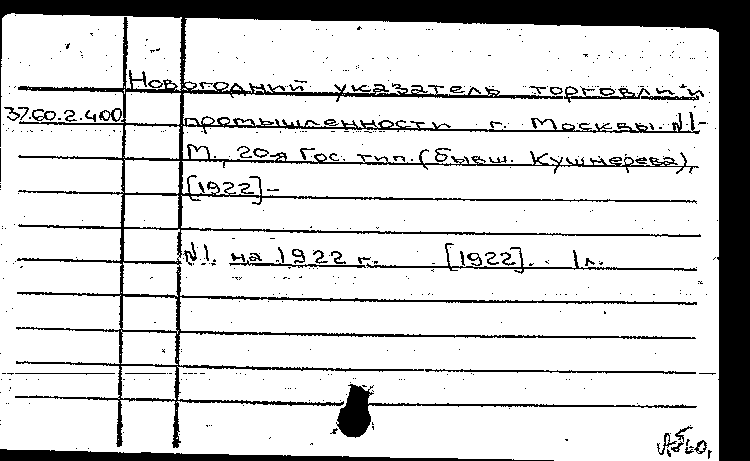 Новогодний указатель торговли и
37.60.2.400
промышленности г. Москвы. №1-
М., 20-я Гос. тип. (бывш. Кушнерева),
[1922]-
№1. на 1922 г. [1922]. 1л.